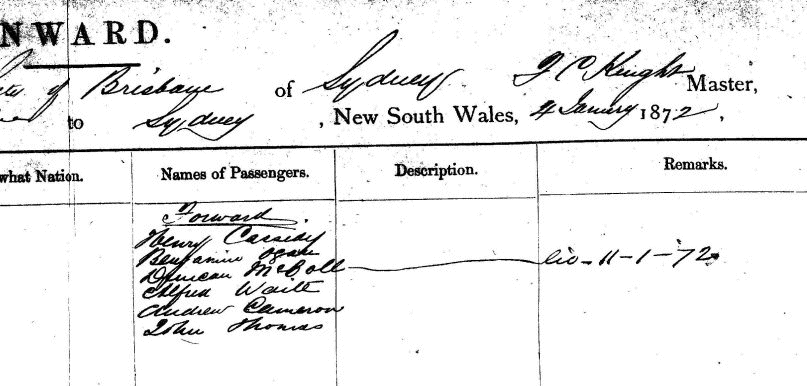 NWARD.
of Brisbane of Sydney J C Knight Master,
to Sydney, New South Wales, 4 January 1872,
what Nation. Names of Passengers. Description. Remarks.
Forward.
Henry Cassidy
Benjamin
Duncan McColl 11-1-72
Alfred Waite
Andrew Cameron
John Thomas